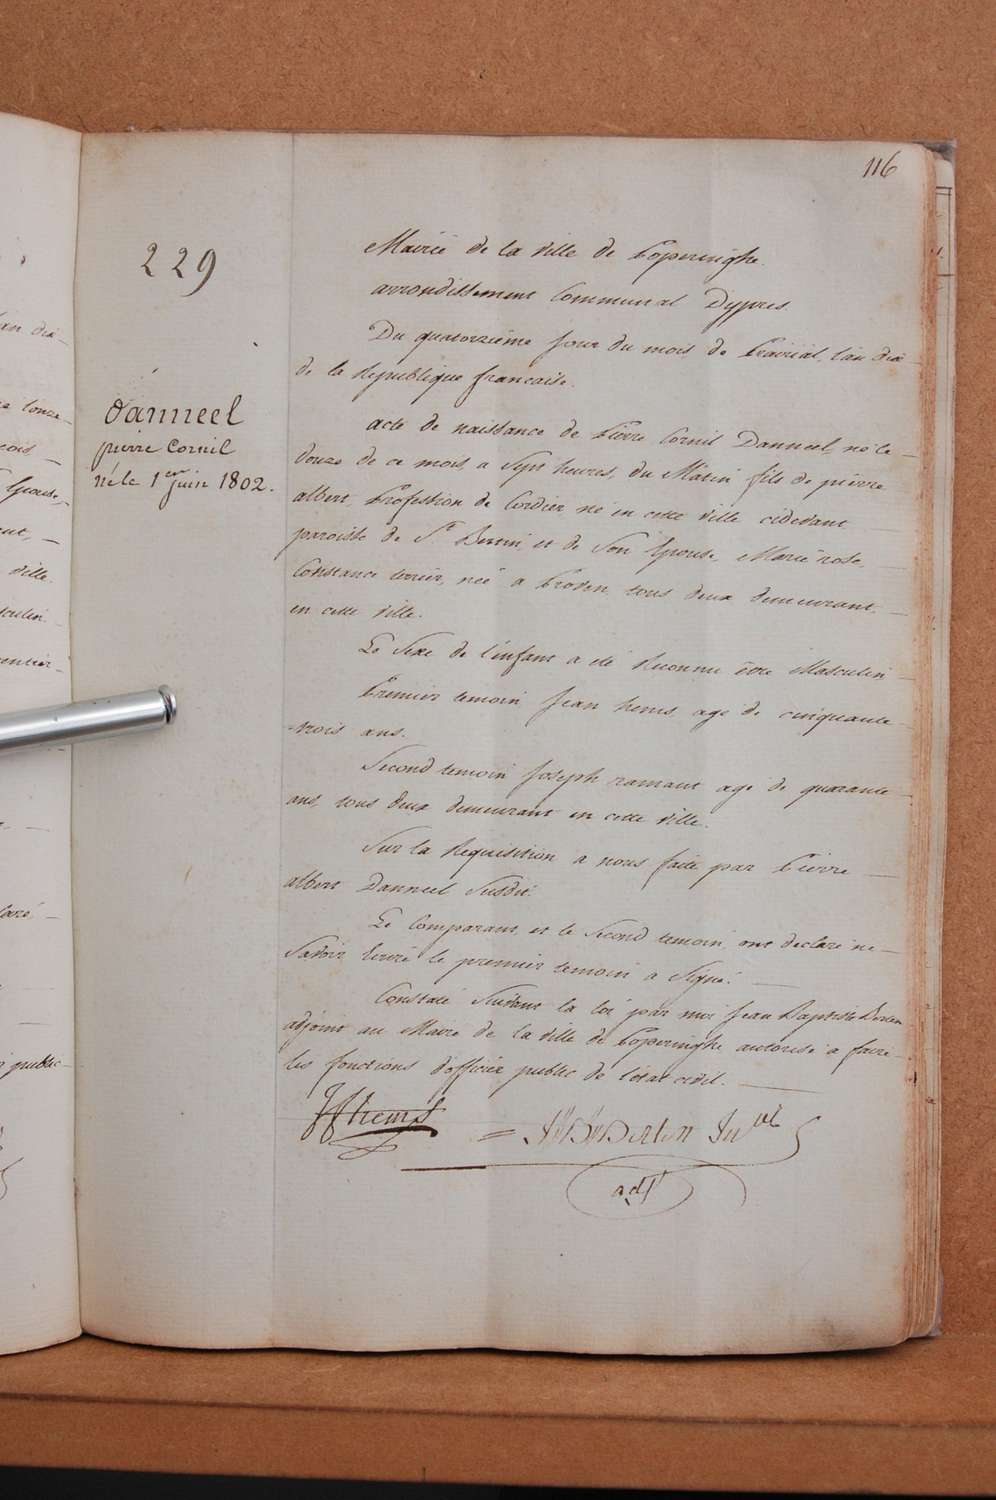 116
229
Danneel
pierre Cornil
né le 1er juin 1802.
Mairie de la ville de Poperinghe.
arrondissement Communal D'ypres.
Du quatorzième jour du mois de Prairial, l'an dix
de la Republique francaise.
acte de naissance de Pierre Cornil Danneel, né le
douze de ce mois, a Sept heures, du Matin fils de pierre
albert, Profession de Cordier, né en cette ville cidevant
paroisse de St Bertin, et de Son Epouse, Marie rose,
Constance terrier, née a Proven, tous deux demeurant
en cette ville.
Le Sexe de l'enfant a été Reconnu être Masculin
Premier temoin, Jean heurs, agé de cinquante
-trois ans.
Second temoin Joseph ramaut agé de quarante
ans, tous deux demeurant en cette ville.
Sur la Requisition a nous faite par Pierre
albert Danneel Susdit.
Le Comparant et le Second temoin, ont declaré ne
Savoir Ecrire le premier temoin a Signé.
Constaté Suivant la loi, par moi Jean Baptiste Berten
adjoint au Maire de la ville de Poperinghe autorisé a faire
les fonctions d'officier public de l'etat civil.
adjt
an dix
ville.
public